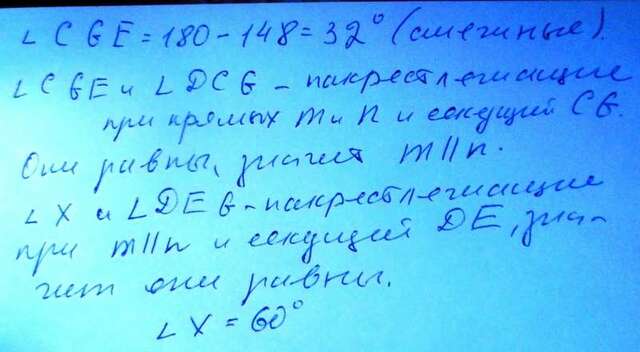 ∠CGE=180-148=32° (смежные).
∠CGE и ∠DCG - накрестлежащие
при прямых m и n и секущий CG.
Они равны, значит m||n.
∠X и ∠DEG - накрестлежащие
при m||n и секущий DE, зна-
чит они равны.
∠X = 60°